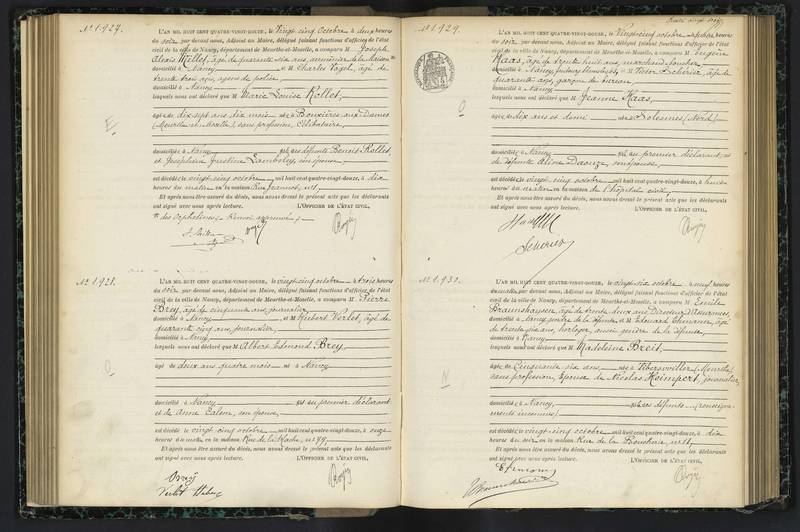 No 1.927.
L'AN MIL HUIT CENT QUATRE-VINGT-DOUZE, le Vingt cinq Octobre à deux heures
du soir par devant nous, Adjoint au Maire, délégué faisant fonctions d'officier de l'état
civil de la ville de Nancy, département de Meurthe-et-Moselle, a comparu M Joseph
Alexis Millot, âgé de quarante six ans, aumônier de la Maison
domicilié à Nancy et M Charles Vogel, âgé de
trente trois ans, agent de police,
domicilié à Nancy
lesquels nous ont déclaré que M Marie Louise Rollet,
âgée de dix sept ans dix mois née à Bouxières aux Dames
(Meurthe et Moselle), sans profession, Célibataire,
domiciliée à Nancy défunts Benoit Rollet,
et Joséphine Justine Lambolez, son épouse
est décédée le vingt-cinq octobre mil huit cent quatre-vingt-douze, à dix
heures du matin en la maison Rue Jeannot,
Et après nous être assuré du décès, nous avons dressé le présent acte que les déclarants
ont signé avec nous après lecture. L'OFFICIER DE L'ÉTAT CIVIL,
des Orphelines. Renvoi approuvé
No 1.928.
L'AN MIL HUIT CENT QUATRE-VINGT-DOUZE, le vingt cinq octobre à trois heures
du soir par devant nous, Adjoint au Maire, délégué faisant fonctions d'officier de l'état
civil de la ville de Nancy, département de Meurthe-et-Moselle, a comparu M Pierre
Brey, âgé de cinquante ans, journalier
domicilié à Nancy et M Hubert Verlet, âgé de
quarante cinq ans, journalier
domicilié à Nancy
lesquels nous ont déclaré que M Albert Edmond Brey,
âgé de deux ans quatre mois né à Nancy
domicilié à Nancy au premier déclarant
et de Anne Salem, son épouse
est décédé le vingt-cinq octobre mil huit cent quatre-vingt-douze, à onze
heures du matin, en la maison Rue de la Hache, no 99,
Et après nous être assuré du décès, nous avons dressé le présent acte que les déclarants
ont signé avec nous après lecture. L'OFFICIER DE L'ÉTAT CIVIL,
No 1.929.
L'AN MIL HUIT CENT QUATRE-VINGT-DOUZE, le Vingt-cinq octobre à quatre heures
du soir par devant nous, Adjoint au Maire, délégué faisant fonctions d'officier de l'état
civil de la ville de Nancy, département de Meurthe-et-Moselle, a comparu M Eugène
Haas, âgé de trente huit ans, marchand
domicilié à Nancy, et M Victor Scherer, âgé de
quarante ans, garçon de bureau
domicilié à Nancy
lesquels nous ont déclaré que M Jeanne Haas,
âgée de dix ans et demi née à Solesmes (Nord)
domiciliée à Nancy au premier déclarant, et
de défunte Aline son épouse
est décédée le vingt-cinq octobre mil huit cent quatre-vingt-douze, à
heures du matin en la maison de l'hôpital civil,
Et après nous être assuré du décès, nous avons dressé le présent acte que les déclarants
ont signé avec nous après lecture. L'OFFICIER DE L'ÉTAT CIVIL,
Scherer
No 1.930.
L'AN MIL HUIT CENT QUATRE-VINGT-DOUZE, le vingt-six octobre à neuf heures
du matin par devant nous, Adjoint au Maire, délégué faisant fonctions d'officier de l'état
civil de la ville de Nancy, département de Meurthe-et-Moselle, a comparu M Emile
Braunshausen, âgé de trente deux ans Directeur d'Assurances,
domicilié à Nancy, gendre de la défunte, et M Edouard Ehmann, âgé
de trente six ans, horloger, aussi gendre de la défunte,
domicilié à Nancy
lesquels nous ont déclaré que M Madeleine Breit,
âgée de Cinquante six ans née à Vibersviller (Meurthe)
sans profession, Epouse de Nicolas Heimpert, journalier,
domiciliée à Nancy défunts (renseigne-
ments inconnus)
est décédée le vingt-cinq octobre mil huit cent quatre-vingt-douze, à dix
heures du soir en la maison Rue de la
Et après nous être assuré du décès, nous avons dressé le présent acte que les déclarants
ont signé avec nous après lecture. L'OFFICIER DE L'ÉTAT CIVIL,